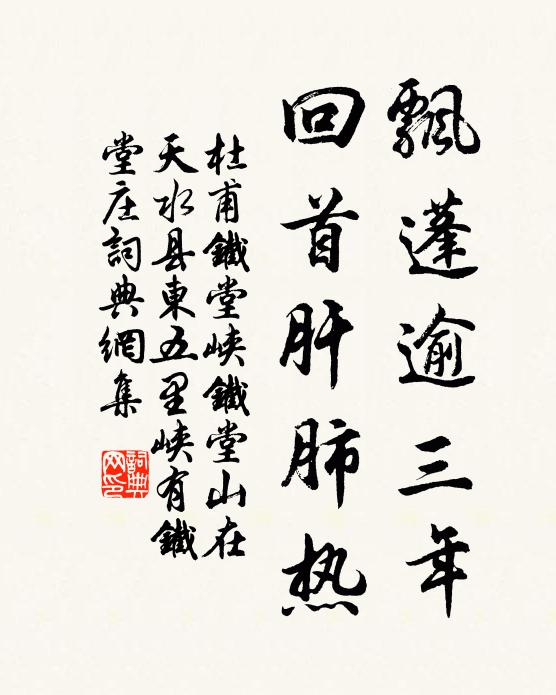 飄蓬逾三年
回首肝肺热
杜甫鐵堂峡鐵堂山在
天水县東五里峡有鐵
堂庄詞典網集
詞典
网印